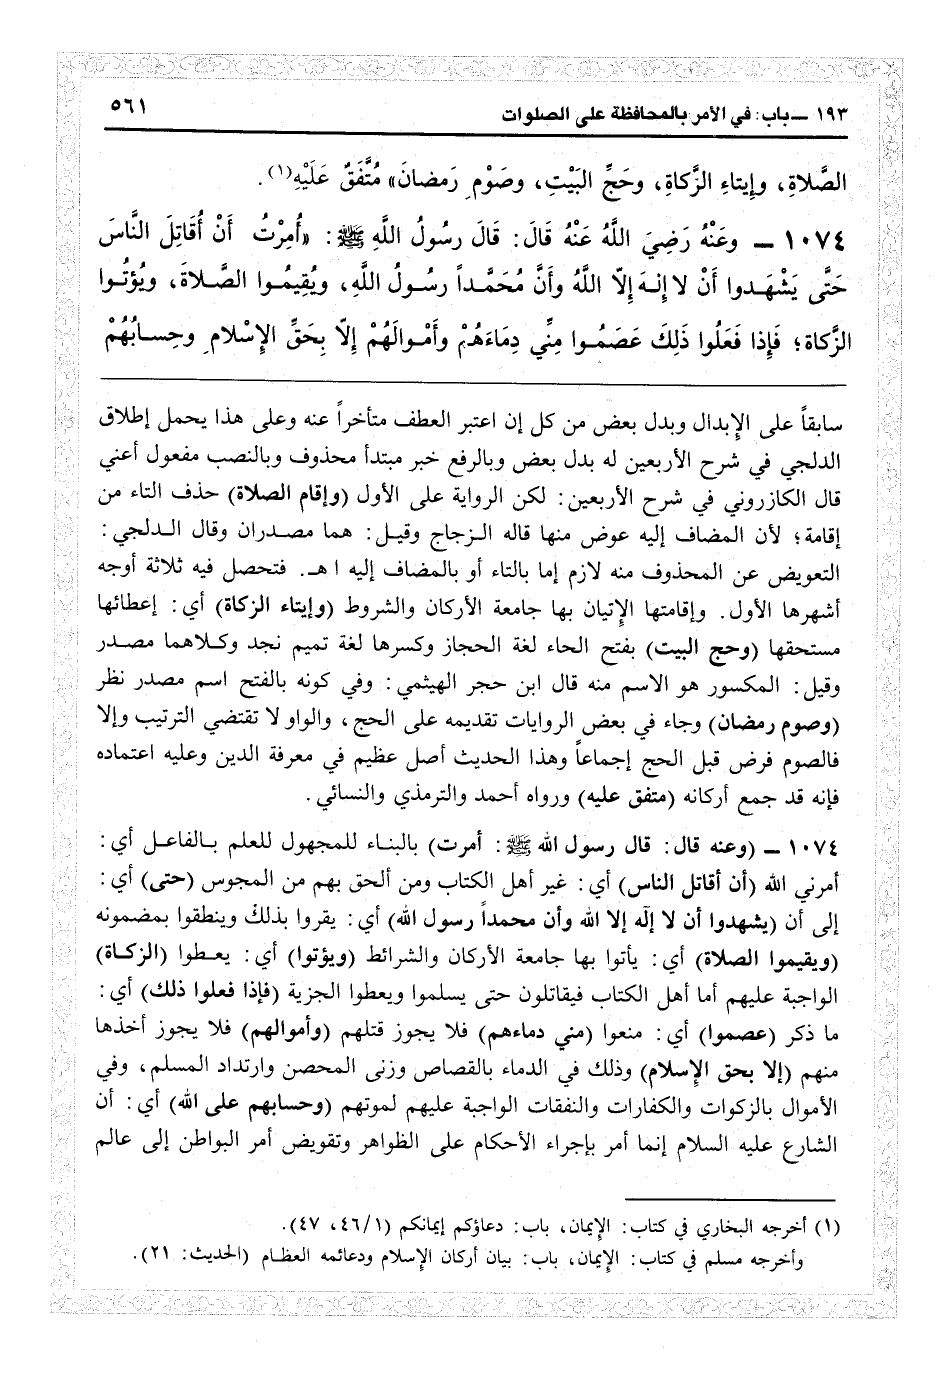 ١٩٣ ــ باب: في الأمر بالمحافظة على الصلوات ٥٦١
الصَّلاةِ، وإيتاءِ الزَّكاةِ، وحَجِّ البَيْتِ، وصَوْمِ رَمضانَ» مُتَّفَقٌ عَلَيْهِ(١).
١٠٧٤ ــ وعَنْهُ رَضِيَ اللَّهُ عَنْهُ قَالَ: قَالَ رسُولُ اللَّهِ ﷺ: «أُمِرْتُ أَنْ أُقَاتِلَ النَّاسَ
حَتَّى يَشْهَدوا أَنْ لا إلهَ إلّا اللَّهُ وأَنَّ مُحَمَّداً رسُولُ اللَّهِ، ويُقِيمُوا الصَّلاةَ، ويُؤتُوا
الزَّكاةَ؛ فَإذا فَعَلُوا ذَلِكَ عَصَمُوا مِنِّي دِمَاءَهُمْ وأَمْوالَهُمْ إلّا بِحَقِّ الإسْلامِ وحِسابُهُمْ
سابقاً على الإبدال وبدل بعض من كل إن اعتبر العطف متأخراً عنه وعلى هذا يحمل إطلاق
الدلجي في شرح الأربعين له بدل بعض وبالرفع خبر مبتدأ محذوف وبالنصب مفعول أعني
قال الكازروني في شرح الأربعين: لكن الرواية على الأول (وإقام الصلاة) حذف التاء من
إقامة؛ لأن المضاف إليه عوض منها قاله الزجاج وقيل: هما مصدران وقال الدلجي:
التعويض عن المحذوف منه لازم إما بالتاء أو بالمضاف إليه ا هـ. فتحصل فيه ثلاثة أوجه
أشهرها الأول. وإقامتها الإتيان بها جامعة الأركان والشروط (وإيتاء الزكاة) أي: إعطائها
مستحقها (وحج البيت) بفتح الحاء لغة الحجاز وكسرها لغة تميم نجد وكلاهما مصدر
وقيل: المكسور هو الاسم منه قال ابن حجر الهيثمي: وفي كونه بالفتح اسم مصدر نظر
(وصوم رمضان) وجاء في بعض الروايات تقديمه على الحج، والواو لا تقتضي الترتيب وإلا
فالصوم فرض قبل الحج إجماعاً وهذا الحديث أصل عظيم في معرفة الدين وعليه اعتماده
فإنه قد جمع أركانه (متفق عليه) ورواه أحمد والترمذي والنسائي.
١٠٧٤ ــ (وعنه قال: قال رسول الله ﷺ: أمرت) بالبناء للمجهول للعلم بالفاعل أي:
أمرني الله (أن أقاتل الناس) أي: غير أهل الكتاب ومن ألحق بهم من المجوس (حتى) أي:
إلى أن (يشهدوا أن لا إلٰه إلا الله وأن محمداً رسول الله) أي: يقروا بذلك وينطقوا بمضمونه
(ويقيموا الصلاة) أي: يأتوا بها جامعة الأركان والشرائط (ويؤتوا) أي: يعطوا (الزكاة)
الواجبة عليهم أما أهل الكتاب فيقاتلون حتى يسلموا ويعطوا الجزية (فإذا فعلوا ذلك) أي:
ما ذكر (عصموا) أي: منعوا (مني دماءهم) فلا يجوز قتلهم (وأموالهم) فلا يجوز أخذها
منهم (إلا بحق الإسلام) وذلك في الدماء بالقصاص وزنى المحصن وارتداد المسلم، وفي
الأموال بالزكوات والكفارات والنفقات الواجبة عليهم لموتهم (وحسابهم على الله) أي: أن
الشارع عليه السلام إنما أمر بإجراء الأحكام على الظواهر وتفويض أمر البواطن إلى عالم
(١) أخرجه البخاري في كتاب: الإيمان، باب: دعاؤكم إيمانكم (٤٦/١، ٤٧).
وأخرجه مسلم في كتاب: الإيمان، باب: بيان أركان الإسلام ودعائمه العظام (الحديث: ٢١).